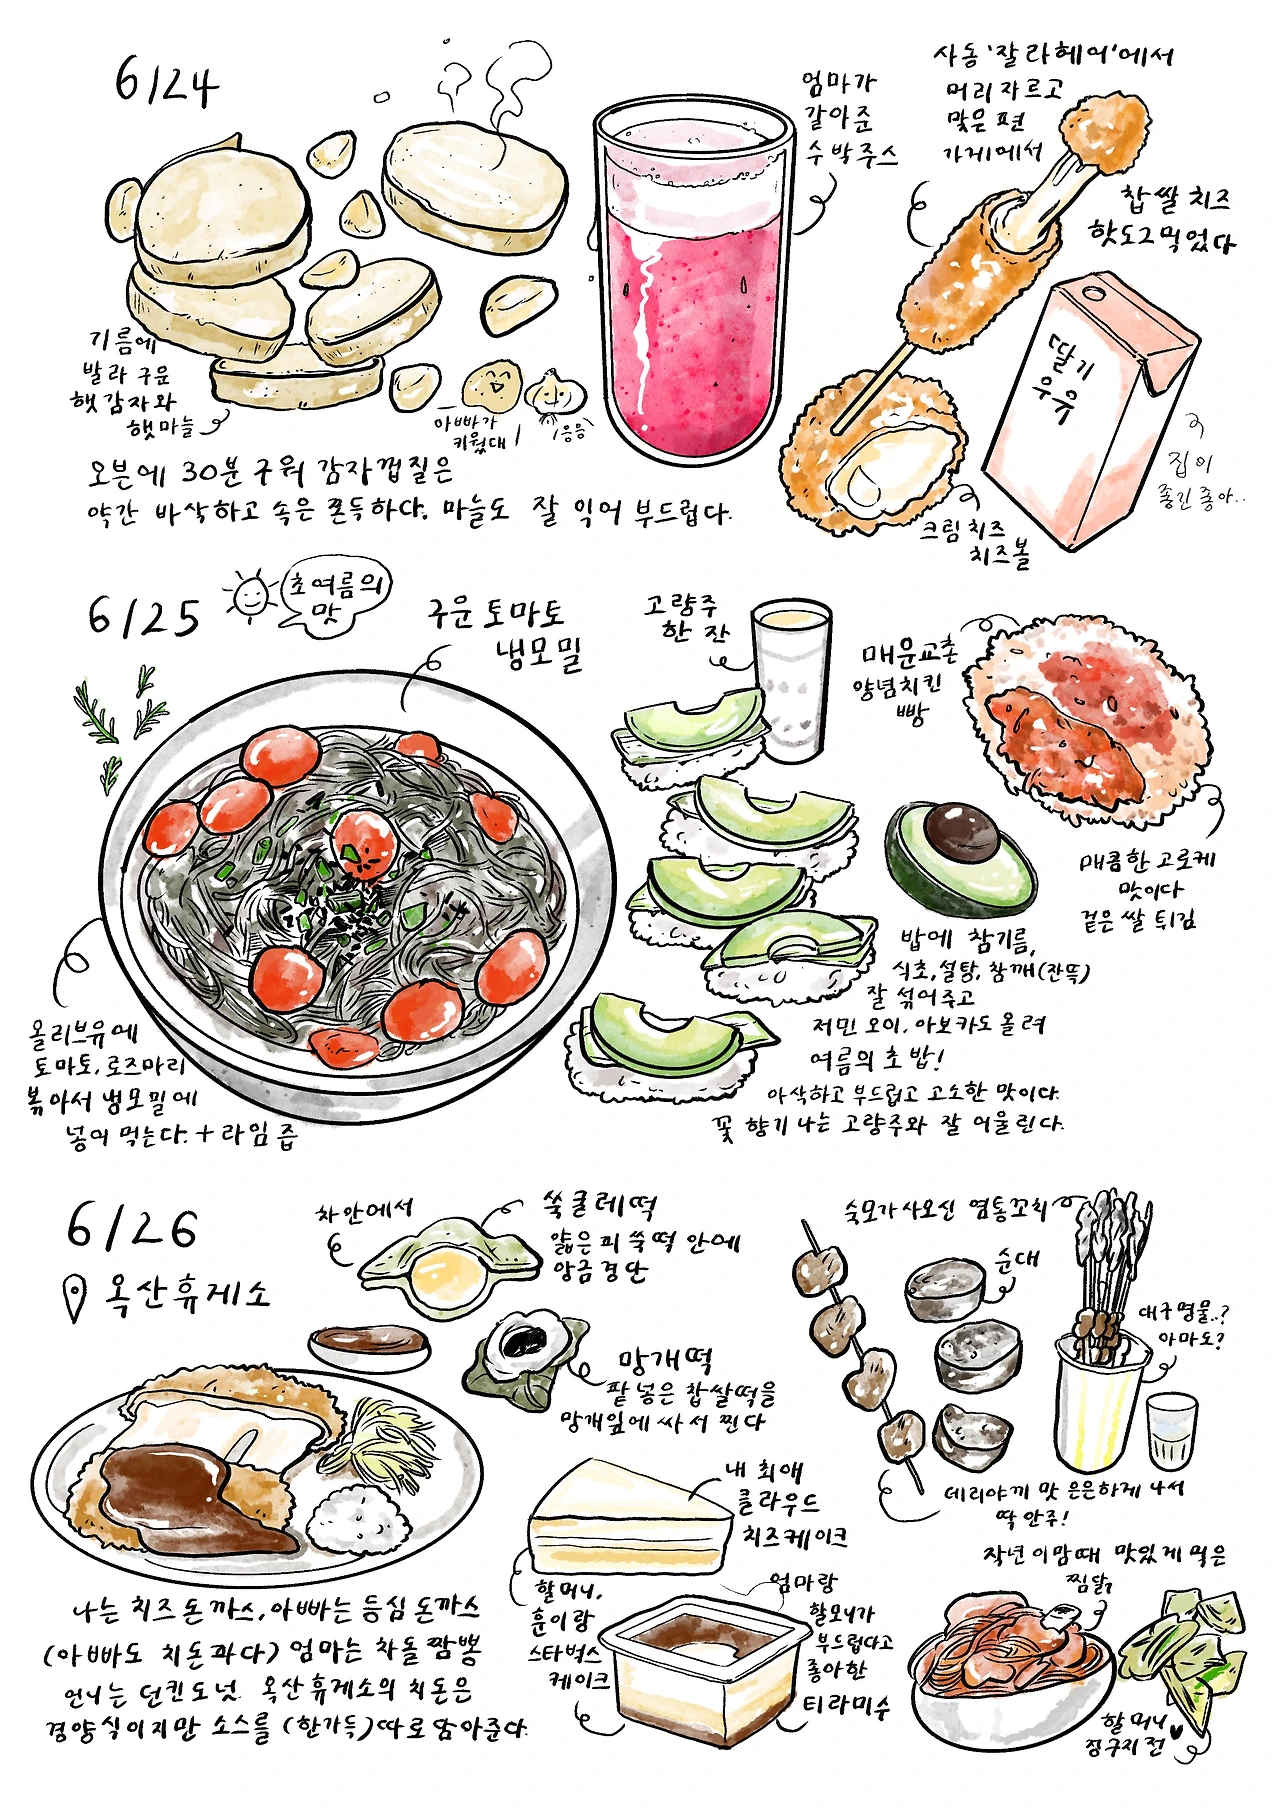 6/24
기름에
발라 구운
햇감자와
햇마늘
아빠가
키웠대!
응응
오븐에 30분 구워 감자껍질은
약간 바삭하고 속은 쫀득하다. 마늘도 잘 익어 부드럽다.
엄마가
갈아준
수박주스
사동 '잘라헤어'에서
머리 자르고
맞은 편
가게에서
찹쌀 치즈
핫도그 먹었다
딸기
우유
집이
좋긴 좋아..
크림치즈
치즈볼
6/25
초여름의
맛
구운 토마토
냉모밀
올리브유에
토마토, 로즈마리
볶아서 냉모밀에
넣어 먹는다. + 라임 즙
고량주
한 잔
매운교촌
양념치킨
빵
매콤한 고로케
맛이다
겉은 쌀 튀김
밥에 참기름,
식초, 설탕, 참깨(잔뜩)
잘 섞어주고
저민 오이, 아보카도 올려
여름의 초밥!
아삭하고 부드럽고 고소한 맛이다.
꽃 향기 나는 고량주와 잘 어울린다.
6/26
옥산휴게소
차 안에서
쑥굴레떡
얇은 피 쑥떡 안에
앙금 경단
망개떡
팥 넣은 찹쌀떡을
망개잎에 싸서 찐다
나는 치즈돈까스, 아빠는 등심 돈까스
(아빠도 치돈과다) 엄마는 차돌짬뽕
언니는 던킨도넛. 옥산휴게소의 치돈은
경양식이지만 소스를 (한가득) 따로 담아준다.
숙모가 사오신 염통꼬치
순대
대구명물..?
아마도?
데리야끼 맛 은은하게 나서
딱 안주!
내 최애
클라우드
치즈케이크
할머니,
훈이랑
스타벅스
케이크
엄마랑
할머니가
부드럽다고
좋아한
티라미수
작년 이맘때 맛있게 먹은
찜닭
할머니
정구지전